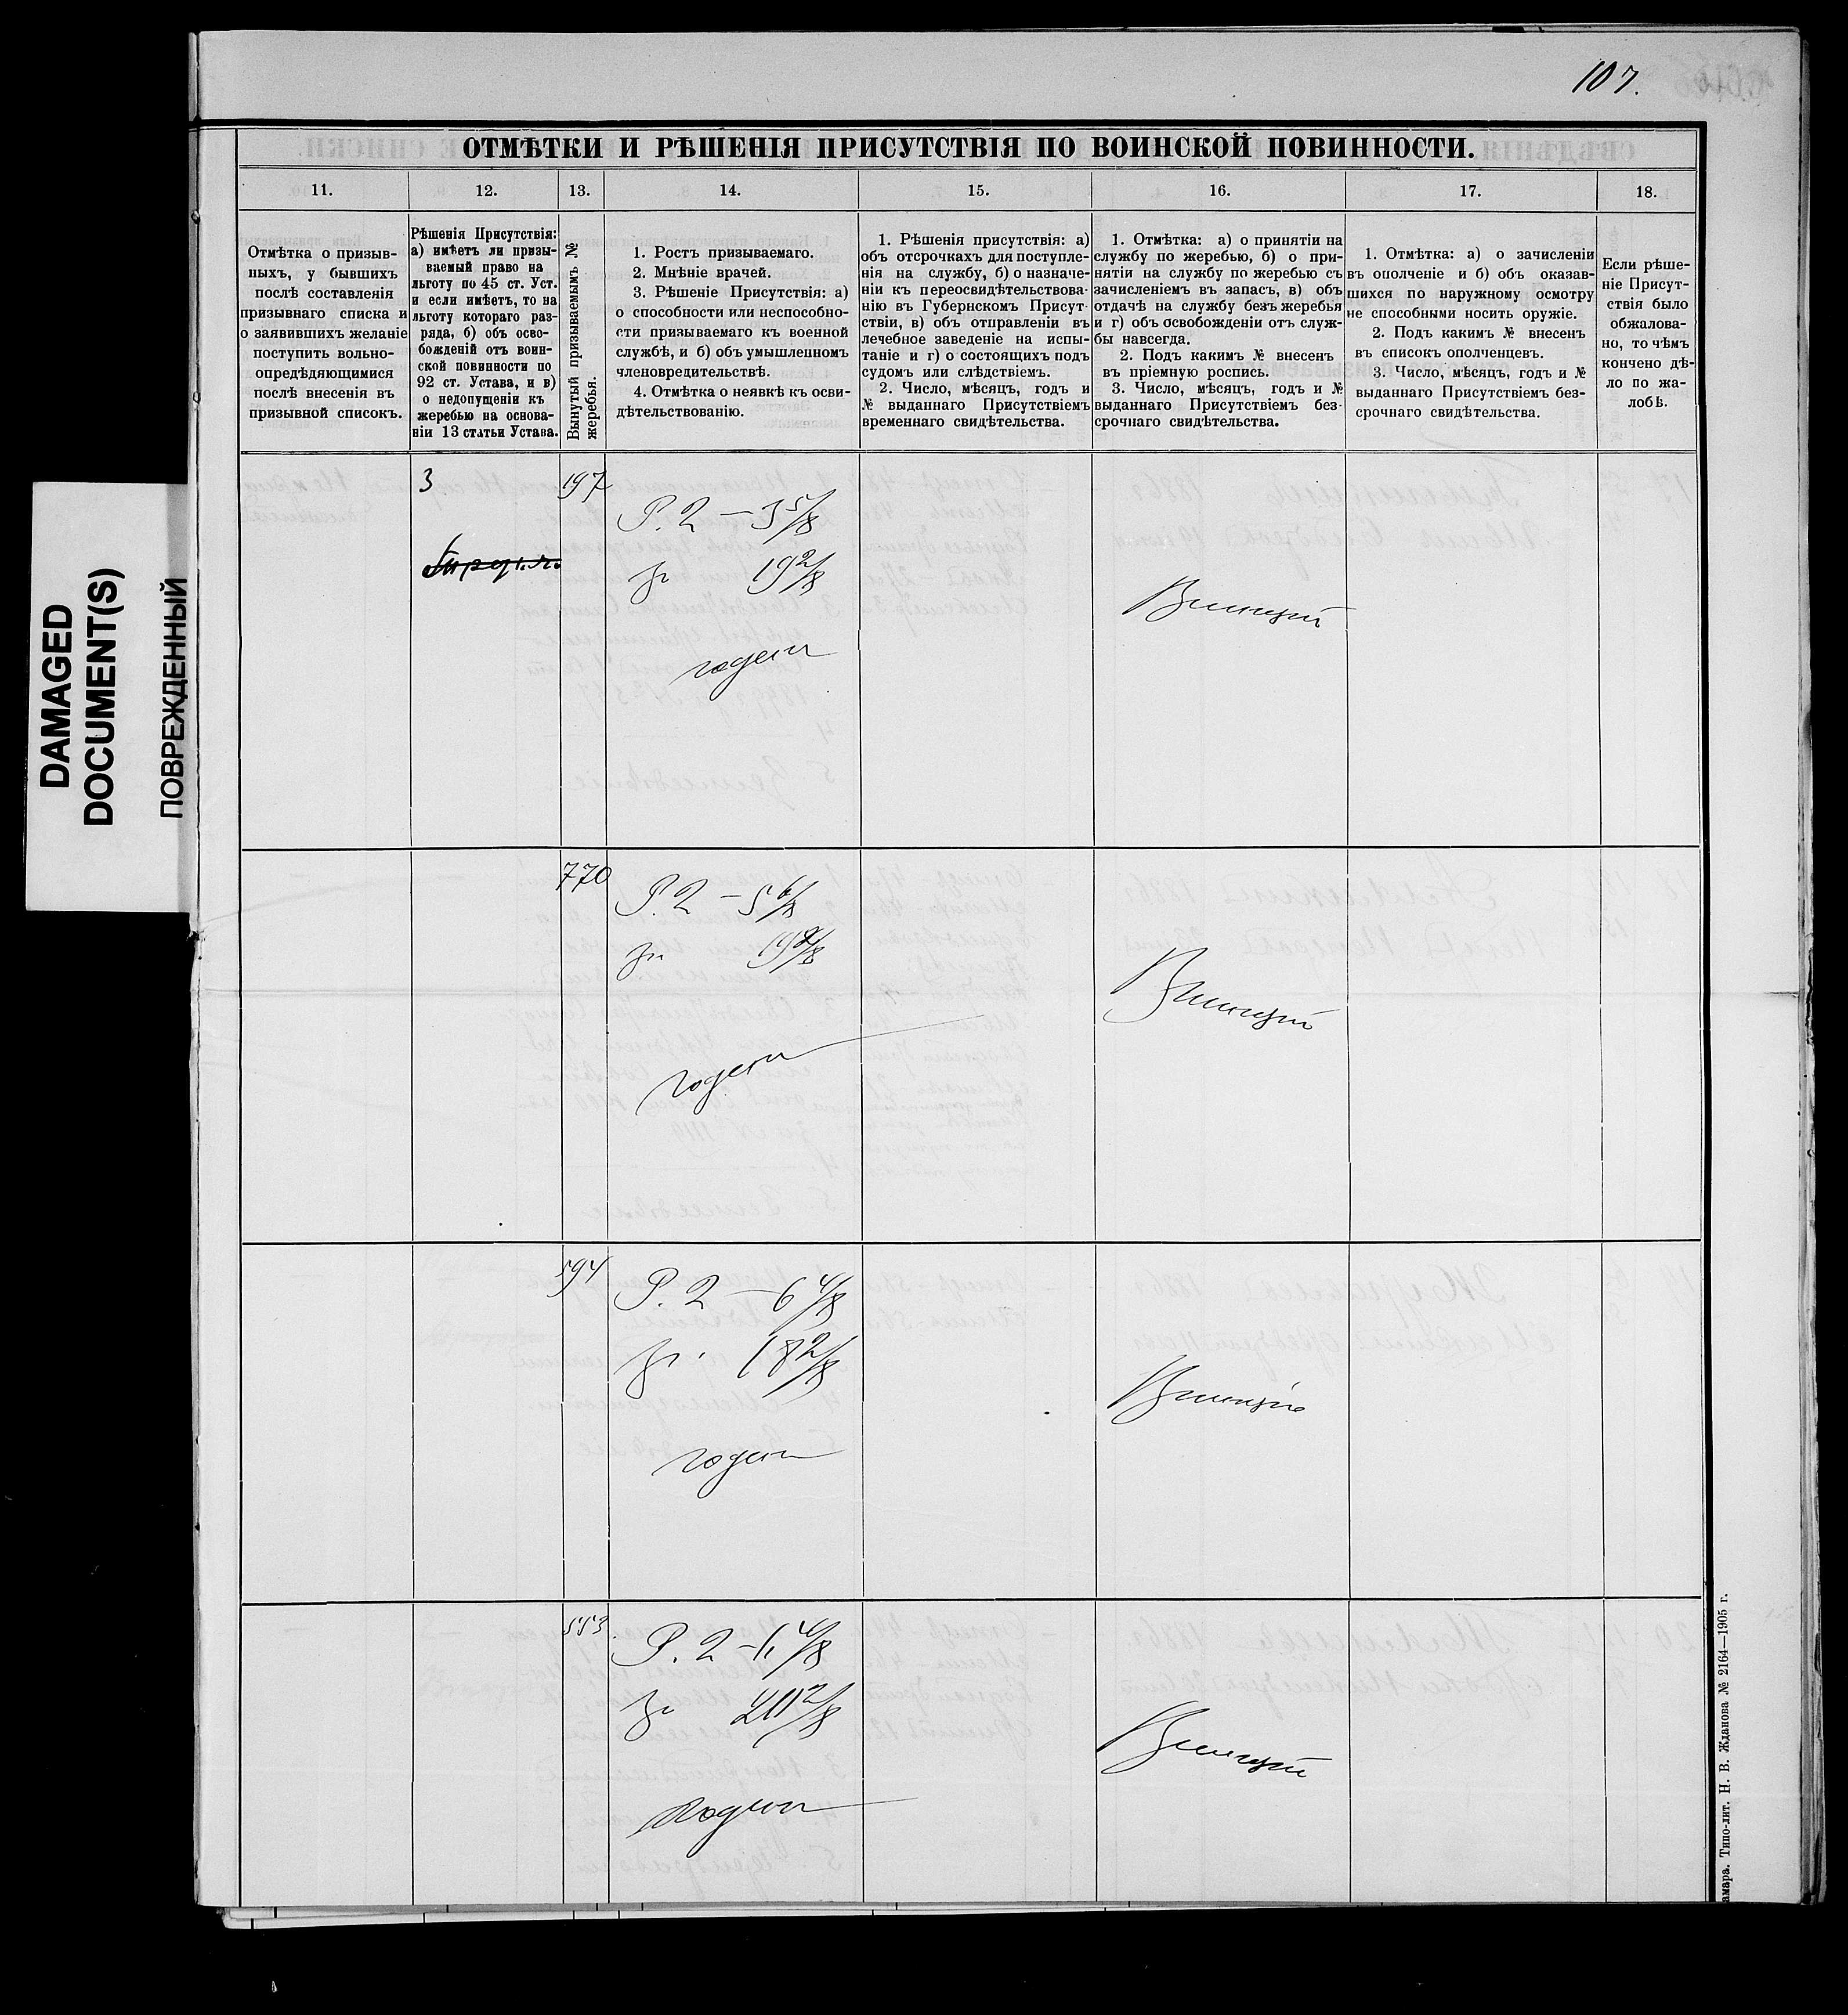 107.
DAMAGED
DOCUMENT(S)
ПОВРЕЖДЕННЫЙ
ОТМѢТКИ И РѢШЕНІЯ ПРИСУТСТВІЯ ПО ВОИНСКОЙ ПОВИННОСТИ.
11.
12.
13.
14.
15.
16.
17.
18.
Отмѣтка о призыв-
ныхъ, у бывшихъ
послѣ составленія
призывнаго списка и
о заявившихъ желаніе
поступить вольно-
опредѣдяющимися
послѣ внесенія въ
призывной списокъ.
Рѣшенія Присутствія:
а) имѣетъ ли призы-
ваемый право на
льготу по 45 ст. Уст.
и если имѣетъ, то на
льготу котораго раз-
ряда, б) объ осво-
божденій отъ воин-
ской повинности по
92 ст. Устава, и в)
о недопущеніи къ
жеребью на основа-
ніи 13 статьи Устава.
Вынутый призываемымъ №
жеребья.
1. Ростъ призываемаго.
2. Мнѣніе врачей.
3. Рѣшеніе Присутствія: а)
о способности или неспособно-
сти призываемаго къ военной
службѣ, и б) объ умышленномъ
членовредительствѣ.
4. Отмѣтка о неявкѣ къ осви-
дѣтельствованію.
1. Рѣшенія присутствія: а)
объ отсрочкахъ для поступле-
нія на службу, б) о назначе-
ніи къ переосвидѣтельствова-
нію въ Губернскомъ Присут-
ствіи, в) объ отправленіи въ
лечебное заведеніе на испы-
таніе и г) о состоящихъ подъ
судомъ или слѣдствіемъ.
2. Число, мѣсяцъ, годъ и
№ выданнаго Присутствіемъ
временнаго свидѣтельства.
1. Отмѣтка: а) о принятіи на
службу по жеребью, б) о при-
нятіи на службу по жеребью съ
зачисленіемъ въ запасъ, в) объ
отдачѣ на службу безъ жеребья
и г) объ освобожденіи отъ служ-
бы навсегда.
2. Подъ какимъ № внесенъ
въ пріемную роспись.
3. Число, мѣсяцъ, годъ и №
выданнаго Присутствіемъ без-
срочнаго свидѣтельства.
1. Отмѣтка: а) о зачисленіи
въ ополченіе и б) объ оказав-
шихся по наружному осмотру
не способными носить оружіе.
2. Подъ какимъ № внесенъ
въ списокъ ополченцевъ.
3. Число, мѣсяцъ, годъ и №
выданнаго Присутствіемъ без-
срочнаго свидѣтельства.
Если рѣше-
ніе Присут-
ствія было
обжалова-
но, то чѣмъ
кончено дѣ-
ло по жа-
лобѣ.
3
197
Р. 2 — 3 5/8
19 2/8
годенъ
770
Р. 2 — 5 6/8
19 2/8
годенъ
594
Р. 2 — 6 4/8
18 2/8
годенъ
553
Р. 2 — 6 4/8
20 2/8
годенъ
амара. Типо-лит. Н. В. Жданова № 2164—1905 г.